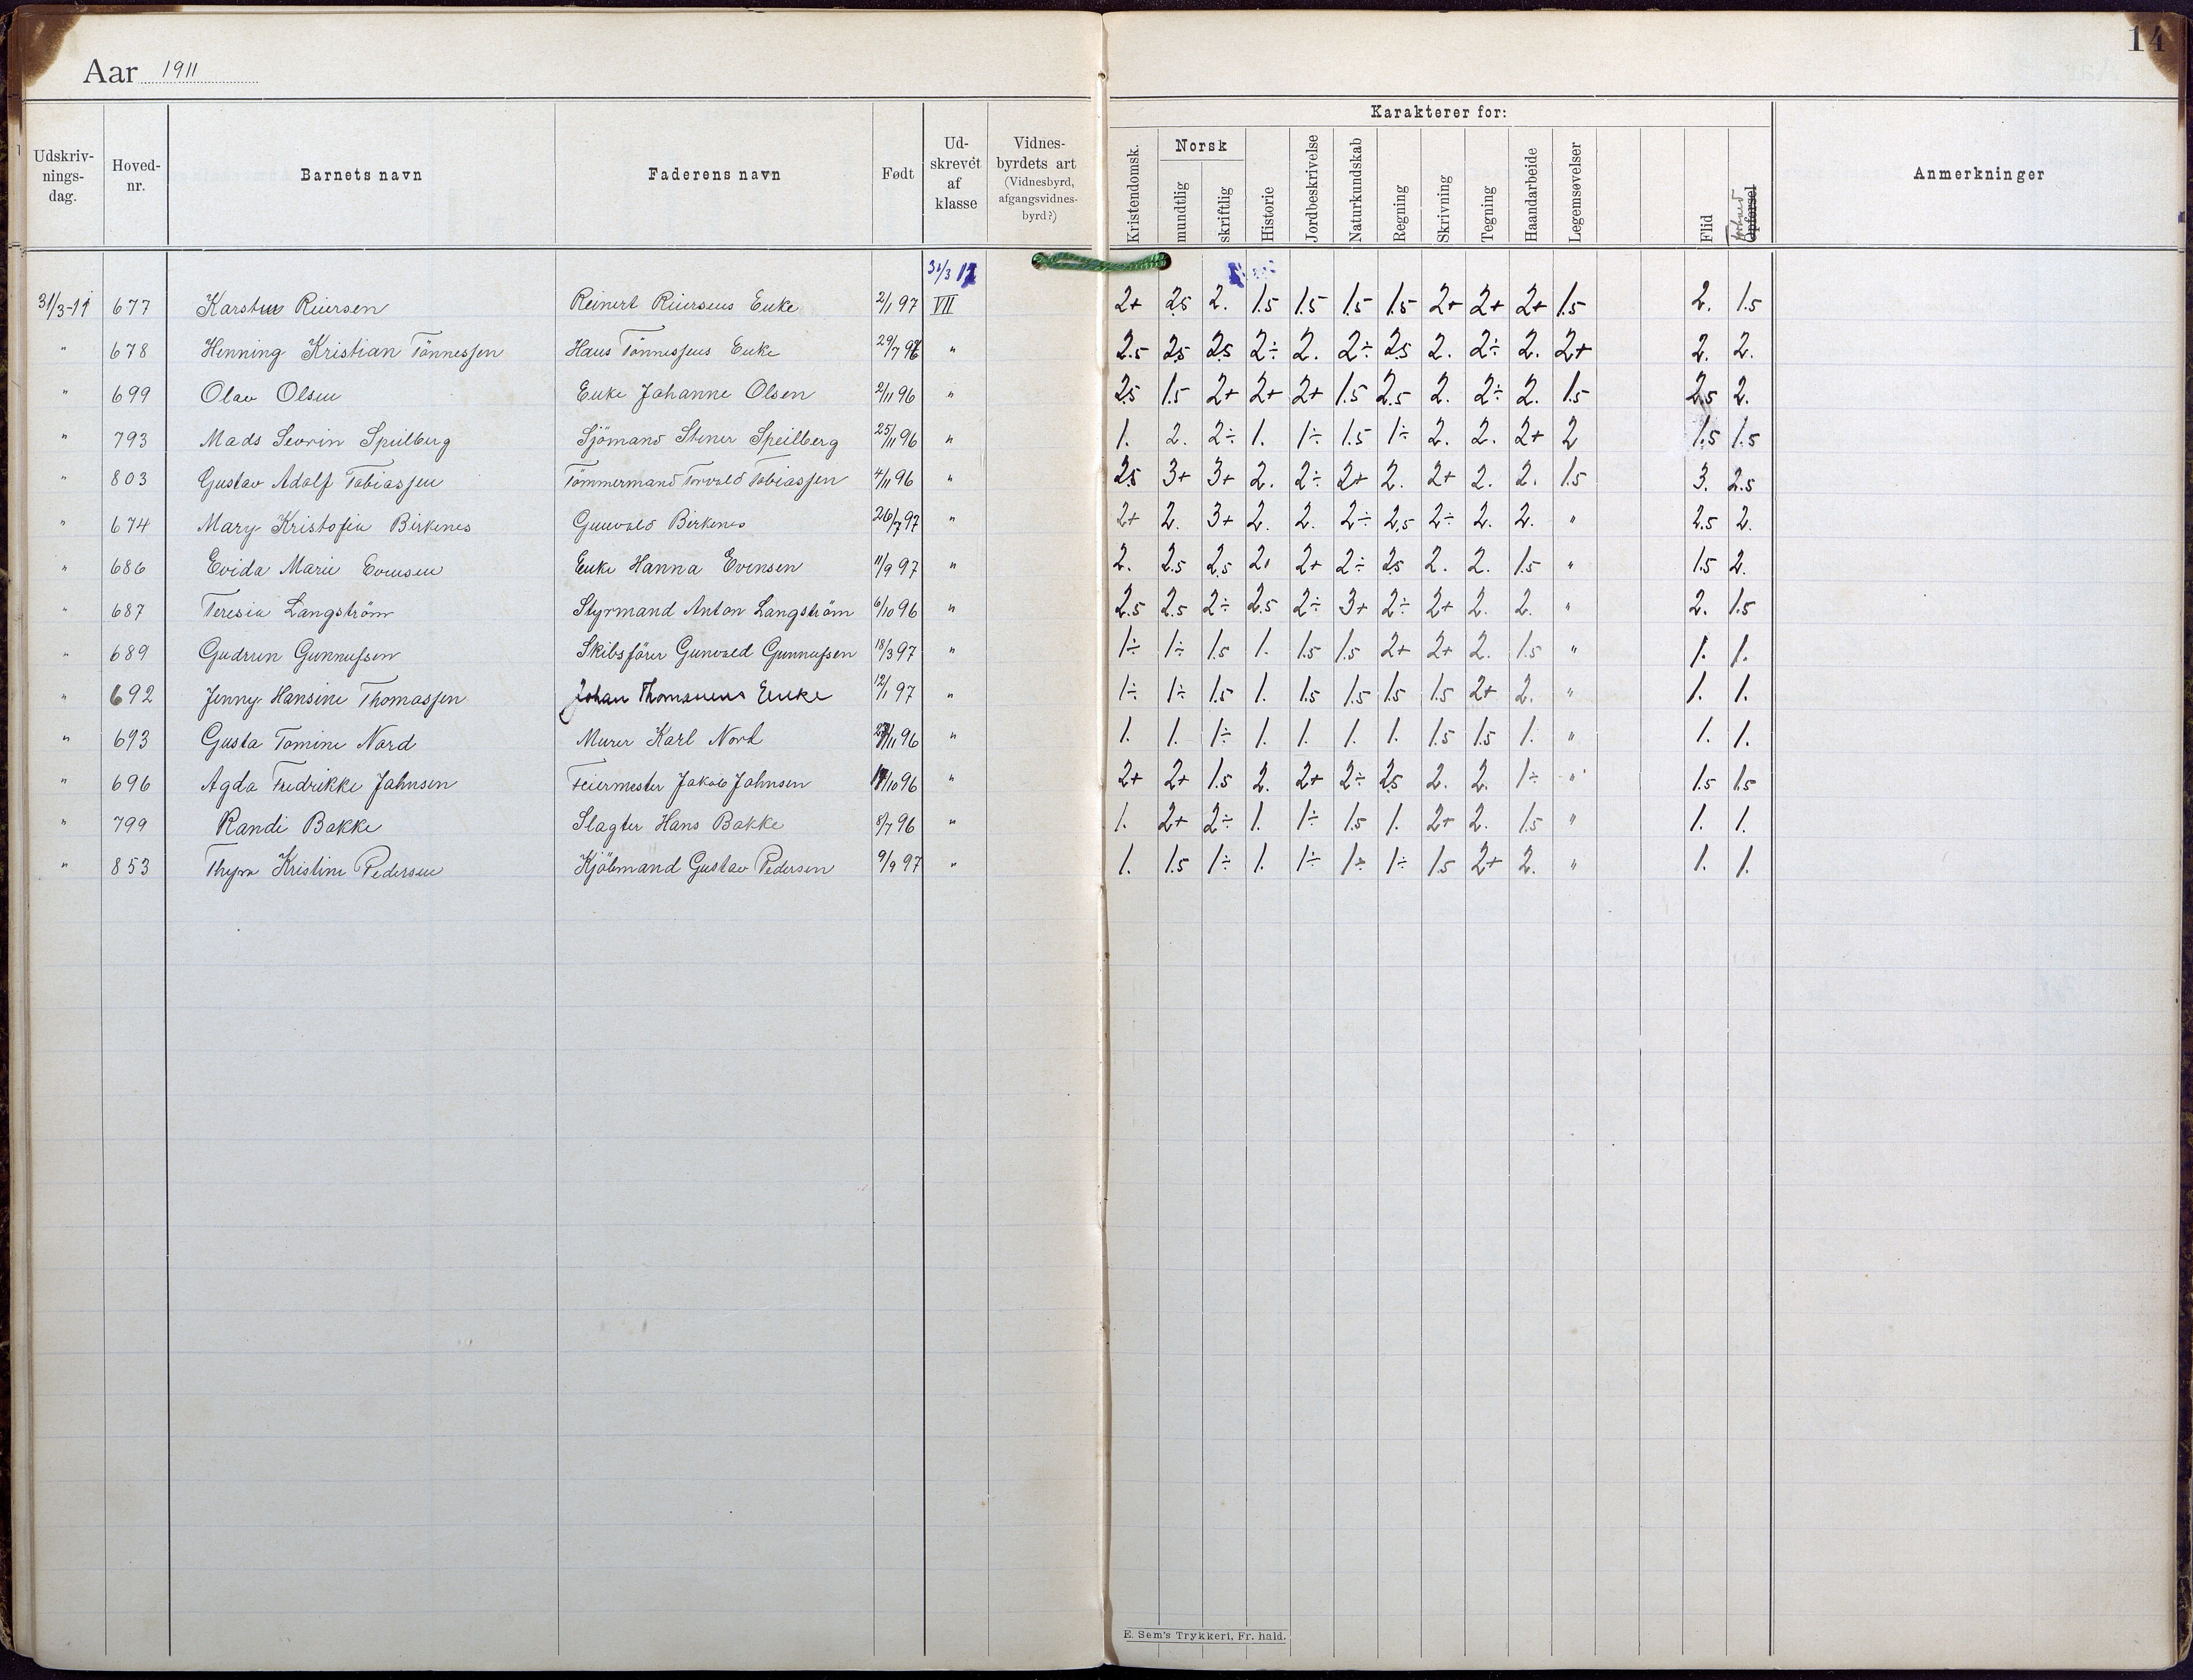 Aar 1911
14
Karakterer for:
Udskriv-nings-dag. Hoved-nr. Barnets navn Faderens navn Født Ud-skrevet af klasse Vidnes-byrdets art (Vidnesbyrd, afgangsvidnes-byrd?) Kristendomsk. Norsk mundtlig skriftlig Historie Jordbeskrivelse Naturkundskab Regning Skrivning Tegning Haandarbeide Legemsøvelser Flid Opførsel Anmerkninger
31/3 11
31/3-11 677 Karsten Reiersen Reinert Reiersens Enke 2/1 97 VII 2+ 2.5 2. 1.5 1.5 1.5 1.5 2+ 2+ 2+ 1.5 2. 1.5
" 678 Henning Kristian Tönnessen Hans Tönnessens Enke 29/7 96 " 2.5 2.5 2.5 2÷ 2. 2÷ 2.5 2. 2÷ 2. 2+ 2. 2.
" 699 Olav Olsen Enke Johanne Olsen 2/11 96 " 2.5 1.5 2+ 2+ 2+ 1.5 2.5 2. 2÷ 2. 1.5 2.5 2.
" 793 Mads Sevrin Speilberg Sjömand Stener Speilberg 25/11 96 " 1. 2. 2÷ 1. 1÷ 1.5 1÷ 2. 2. 2+ 2 1.5 1.5
" 803 Gustav Adolf Tobiassen Tömmermand Torvald Tobiassen 4/11 96 " 2.5 3+ 3+ 2. 2÷ 2+ 2. 2+ 2. 2. 1.5 3. 2.5
" 674 Mary Kristofia Birkenes Gunvald Birkenes 26/7 97 " 2+ 2. 3+ 2. 2. 2÷ 2.5 2÷ 2. 2. " 2.5 2.
" 686 Evida Marie Evensen Enke Hanna Evensen 11/9 97 " 2. 2.5 2.5 2. 2+ 2÷ 2.5 2. 2. 1.5 " 1.5 2.
" 687 Teresia Langström Styrmand Anton Langström 6/10 96 " 2.5 2.5 2÷ 2.5 2÷ 3+ 2÷ 2+ 2. 2. " 2. 1.5
" 689 Gudrun Gunnufsen Skibsförer Gunvald Gunnufsen 18/3 97 " 1÷ 1÷ 1.5 1. 1.5 1.5 2+ 2+ 2. 1.5 " 1. 1.
" 692 Jenny Hansine Thomassen Johan Thomassens Enke 12/1 97 " 1÷ 1÷ 1.5 1. 1.5 1.5 1.5 1.5 2+ 2. " 1. 1.
" 693 Gusta Tomine Nord Murer Karl Nord /11 96 " 1. 1. 1÷ 1. 1. 1. 1. 1.5 1.5 1. " 1. 1.
" 696 Agda Fredrikke Jahnsen Feiermester Jakob Jahnsen /10 96 " 2+ 2+ 1.5 2. 2+ 2÷ 2.5 2. 2. 1÷ " 1.5 1.5
" 799 Randi Bakke Slagter Hans Bakke 8/7 96 " 1. 2+ 2÷ 1. 1÷ 1.5 1. 2+ 2. 1.5 " 1. 1.
" 853 Thyra Kristine Pedersen Kjöbmand Gustav Pedersen 9/9 97 " 1. 1.5 1÷ 1. 1÷ 1÷ 1÷ 1.5 2+ 2. " 1. 1.
E. Sem's Trykkeri, Fr. hald.